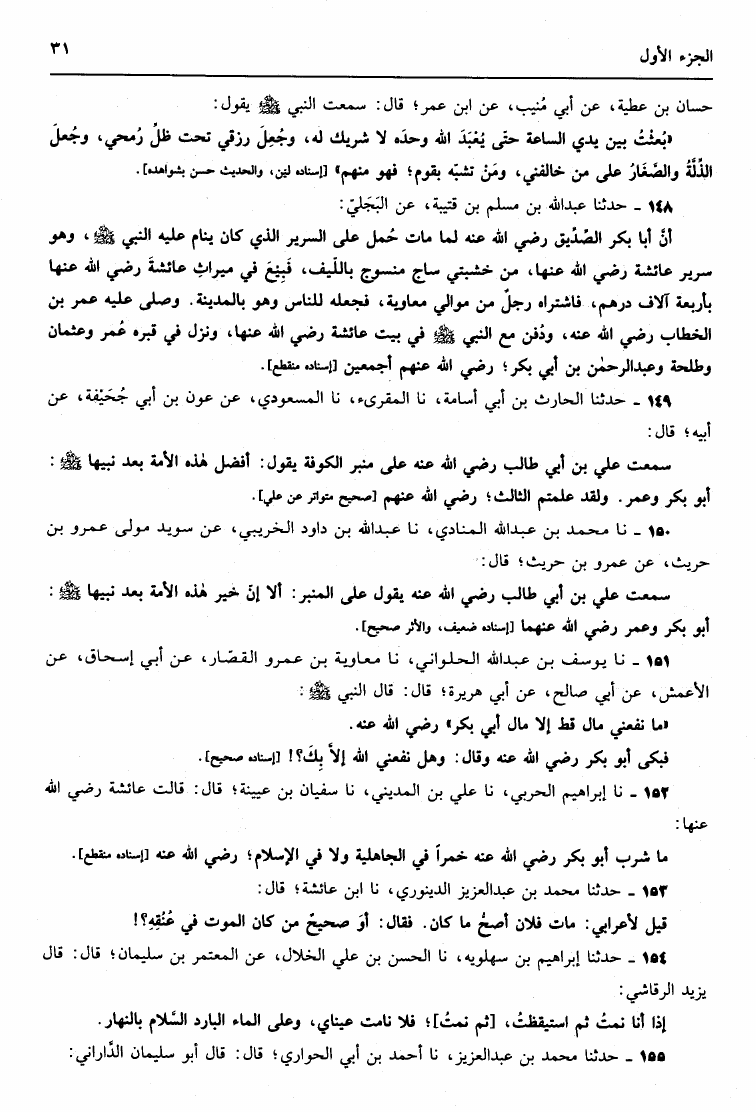 الجزء الأول
٣١
حسان بن عطية، عن أبي مُنيب، عن ابن عمر؛ قال: سمعت النبي ﷺ يقول:
«بُعثْتُ بين يدي الساعة حتّى يُعْبَدَ الله وحدَه لا شريك له، وجُعِلَ رزقي تحت ظلِّ رُمحي، وجُعلَ
الذِّلَّةُ والصَّغَارُ على من خالفني، ومَنْ تشبّه بقوم؛ فهو منهم» [إسناده ليّن، والحديث حسن بشواهده].
١٤٨ ـ حدثنا عبدالله بن مسلم بن قتيبة، عن البَجَليّ:
أنَّ أبا بكر الصّدّيق رضي الله عنه لما مات حُمل على السرير الذي كان ينام عليه النبي ﷺ، وهو
سرير عائشة رضي الله عنها، من خشبتي ساج منسوج باللّيف، فَبِيْعَ في ميراثِ عائشةَ رضي الله عنها
بأربعة آلاف درهم، فاشتراه رجلٌ من موالي معاوية، فجعله للناس وهو بالمدينة. وصلى عليه عمر بن
الخطاب رضي الله عنه، ودُفن مع النبي ﷺ في بيت عائشة رضي الله عنها، ونزل في قبره عُمر وعثمان
وطلحة وعبدالرحمٰن بن أبي بكر؛ رضي الله عنهم أجمعين [إسناده منقطع].
١٤٩ ـ حدثنا الحارث بن أبي أسامة، نا المقرىء، نا المسعودي، عن عون بن أبي جُحَيْفة، عن
أبيه؛ قال:
سمعت علي بن أبي طالب رضي الله عنه على منبر الكوفة يقول: أفضل هٰذه الأمة بعد نبيها ﷺ:
أبو بكر وعمر. ولقد علمتم الثالث؛ رضي الله عنهم [صحيح متواتر عن علي].
١٥٠ ـ نا محمد بن عبدالله المنادي، نا عبدالله بن داود الخريبي، عن سويد مولى عمرو بن
حريث، عن عمرو بن حريث؛ قال:
سمعت علي بن أبي طالب رضي الله عنه يقول على المنبر: ألا إنَّ خير هٰذه الأمة بعد نبيها ﷺ:
أبو بكر وعمر رضي الله عنهما [إسناده ضعيف، والأثر صحيح].
١٥١ ـ نا يوسف بن عبدالله الحلواني، نا معاوية بن عمرو القصّار، عن أبي إسحاق، عن
الأعمش، عن أبي صالح، عن أبي هريرة؛ قال: قال النبي ﷺ:
«ما نفعني مال قط إلا مال أبي بكر» رضي الله عنه.
فبكى أبو بكر رضي الله عنه وقال: وهل نفعني الله إلاَّ بِكَ؟! [إسناده صحيح].
١٥٢ ـ نا إبراهيم الحربي، نا علي بن المديني، نا سفيان بن عيينة؛ قال: قالت عائشة رضي الله
عنها:
ما شرب أبو بكر رضي الله عنه خمراً في الجاهلية ولا في الإسلام؛ رضي الله عنه [إسناده منقطع].
١٥٣ ـ حدثنا محمد بن عبدالعزيز الدينوري، نا ابن عائشة؛ قال:
قيل لأعرابي: مات فلان أصحُّ ما كان. فقال: أوَ صحيحٌ من كان الموت في عُنُقِهِ؟!
١٥٤ ـ حدثنا إبراهيم بن سهلويه، نا الحسن بن علي الخلال، عن المعتمر بن سليمان؛ قال: قال
يزيد الرقاشي:
إذا أنا نمتُ ثم استيقظتُ، [ثم نمتُ]؛ فلا نامت عيناي، وعلى الماء البارد السَّلام بالنهار.
١٥٥ ـ حدثنا محمد بن عبدالعزيز، نا أحمد بن أبي الحواري؛ قال: قال أبو سليمان الدَّاراني: